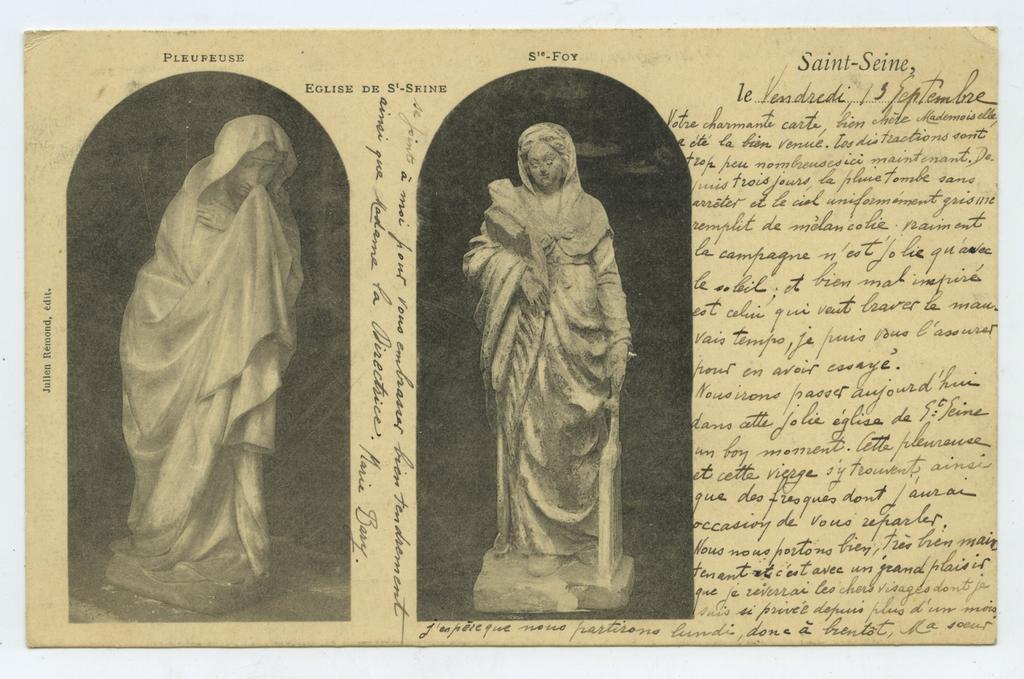 PLEUREUSE
EGLISE DE St-SEINE
Ste-FOY
Julien Rémond, édit.
Saint-Seine,
le Vendredi, 13 Septembre
Votre charmante carte, bien chère Mademoiselle,
a été la bien venue. Les distractions sont
trop peu nombreuses ici maintenant. De
puis trois jours, la pluie tombe sans
arrêter et le ciel uniformement gris me
remplit de mélancolie. Vraiment
la campagne n'est jolie qu'avec
le soleil, et bien mal inspiré
est celui qui veut braver le mau
vais temps, je puis vous l'assurer
pour en avoir essayé.
Nous irons passer aujourd'hui
dans cette jolie église de St Seine
un bon moment. Cette pleureuse
et cette vierge s'y trouvent, ainsi
que des fresques dont j'aurai
occasion de vous reparler.
Nous nous portons bien, très bien main
tenant et c'est avec un grand plaisir
que je reverrai les chers visages dont je
suis si privée depuis plus d'un mois
j'espère que nous partirons lundi, donc à bientôt, Ma soeur
se joint à moi pour vous embrasser bien tendrement
ainsi que Madame la Directrice. Marie